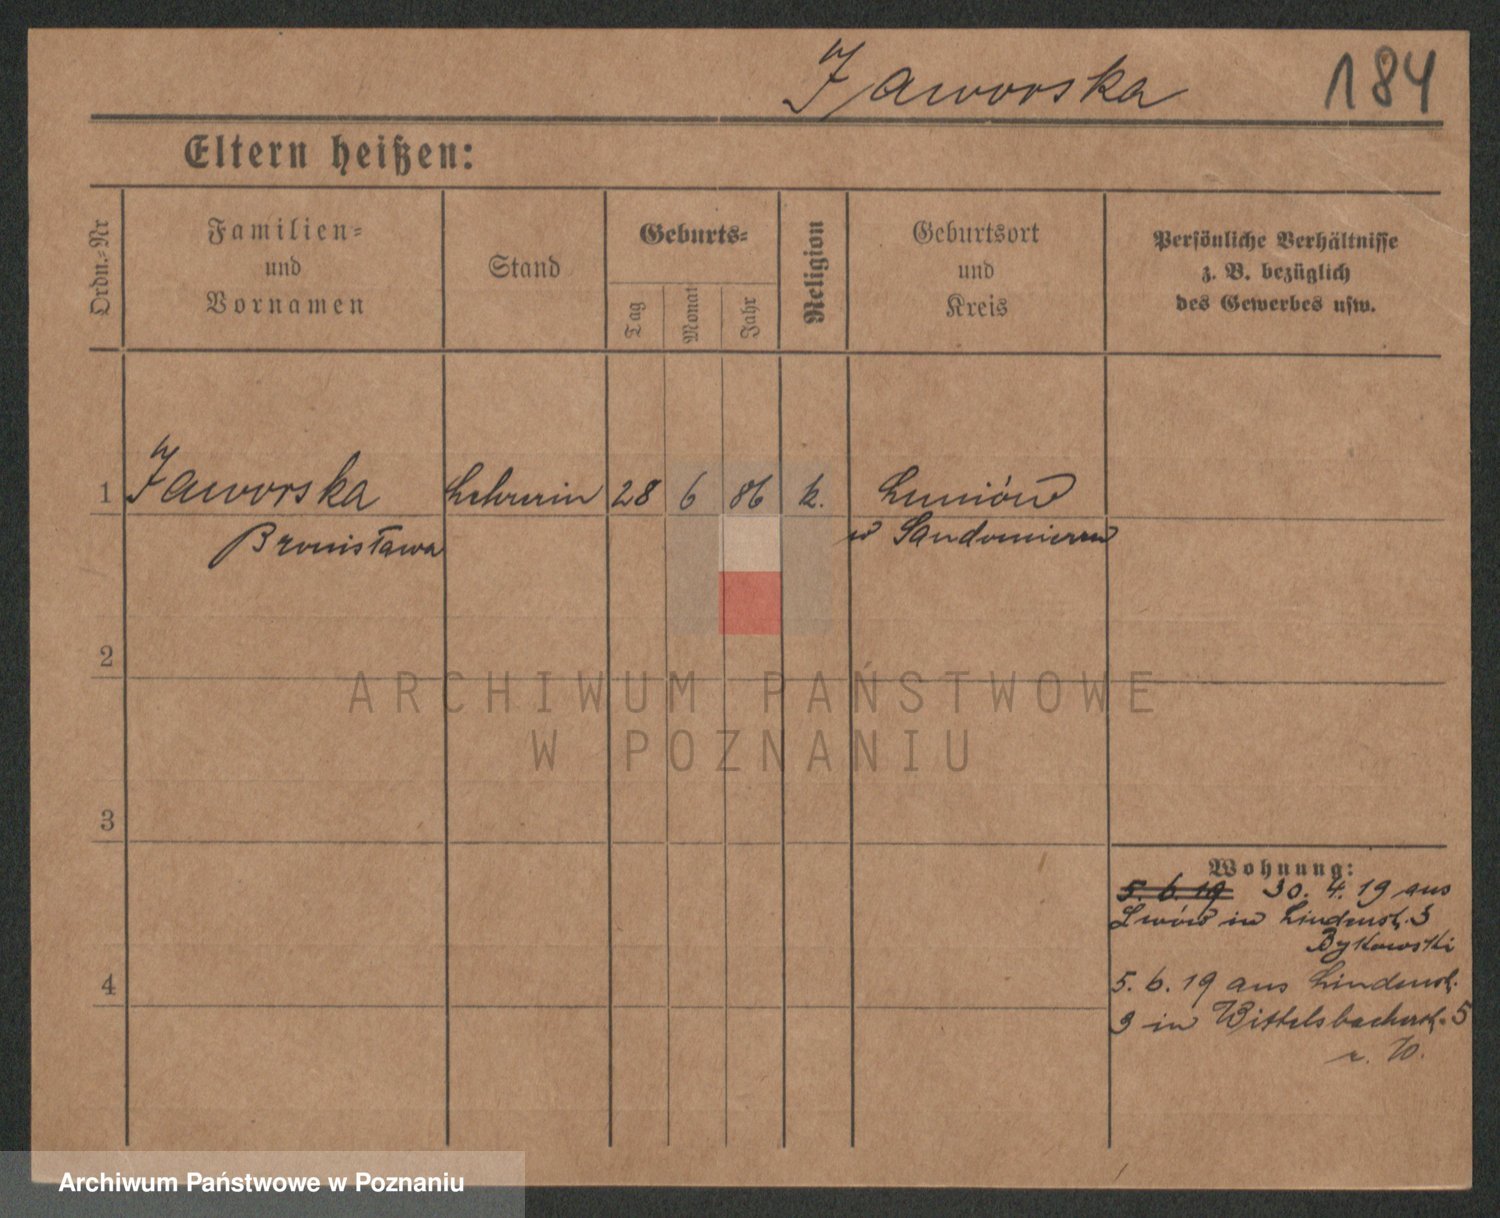 Jaworska 184
Eltern heißen:
Ordn.-Nr
Familien-
und
Vornamen
Stand
Geburts-
Tag
Monat
Jahr
Religion
Geburtsort
und
Kreis
Persönliche Verhältnisse
z. B. bezüglich
des Gewerbes usw.
1 Jaworska Lehrerin 28 6 86 k.
Bronisława
w Sandomierzu
2
ARCHIWUM PAŃSTWOWE
W POZNANIU
3
Wohnung:
5. 6. 19 30. 4. 19 aus
Lwów in Lindenstr. 3
Bykowski
4
5. 6. 19 aus Lindenstr.
3 in Wittelsbacherstr. 5
Archiwum Państwowe w Poznaniu